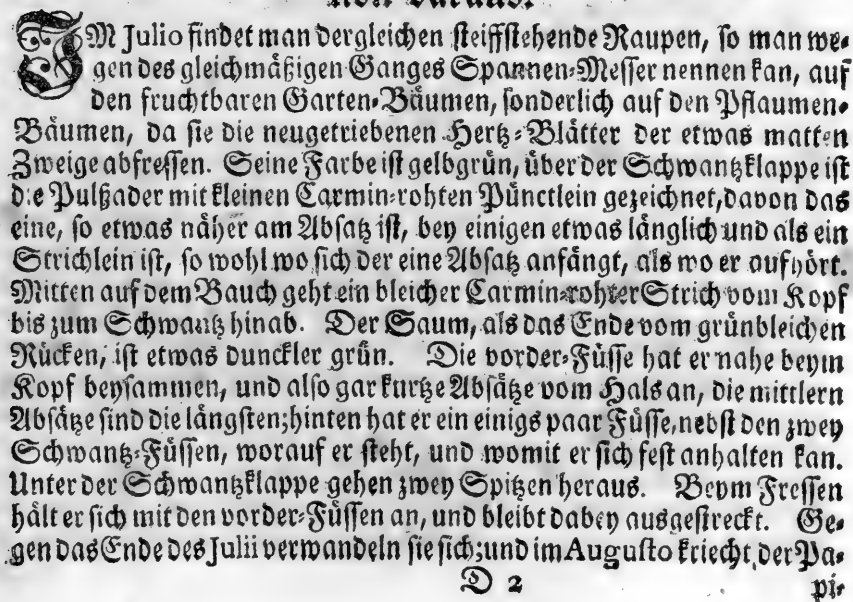 IM Julio findet man dergleichen steiffstehende Raupen, so man we-
gen des gleichmäßigen Ganges Spannen-Messer nennen kan, auf
den fruchtbaren Garten-Bäumen, sonderlich auf den Pflaumen-
Bäumen, da sie die neugetriebenen Hertz-Blätter der etwas matten
Zweige abfressen. Seine Farbe ist gelbgrün, über der Schwantzklappe ist
die Pulßader mit kleinen Carmin-rohten Pünctlein gezeichnet, davon das
eine, so etwas näher am Absatz ist, bey einigen etwas länglich und als ein
Strichlein ist, so wohl wo sich der eine Absatz anfängt, als wo er aufhört.
Mitten auf dem Bauch geht ein bleicher Carmin-rohter Strich vom Kopf
bis zum Schwantz hinab. Der Saum, als das Ende vom grünbleichen
Rücken, ist etwas dunckler grün. Die vorder-Füsse hat er nahe beym
Kopf beysammen, und also gar kurtze Absätze vom Hals an, die mittlern
Absätze sind die längsten; hinten hat er ein einigs paar Füsse, nebst den zwey
Schwantz-Füssen, worauf er steht, und womit er sich fest anhalten kan.
Unter der Schwantzklappe gehen zwey Spitzen heraus. Beym Fressen
hält er sich mit den vorder-Füssen an, und bleibt dabey ausgestreckt. Ge-
gen das Ende des Julii verwandeln sie sich; und im Augusto kriecht der Pa-
D 2 pi-